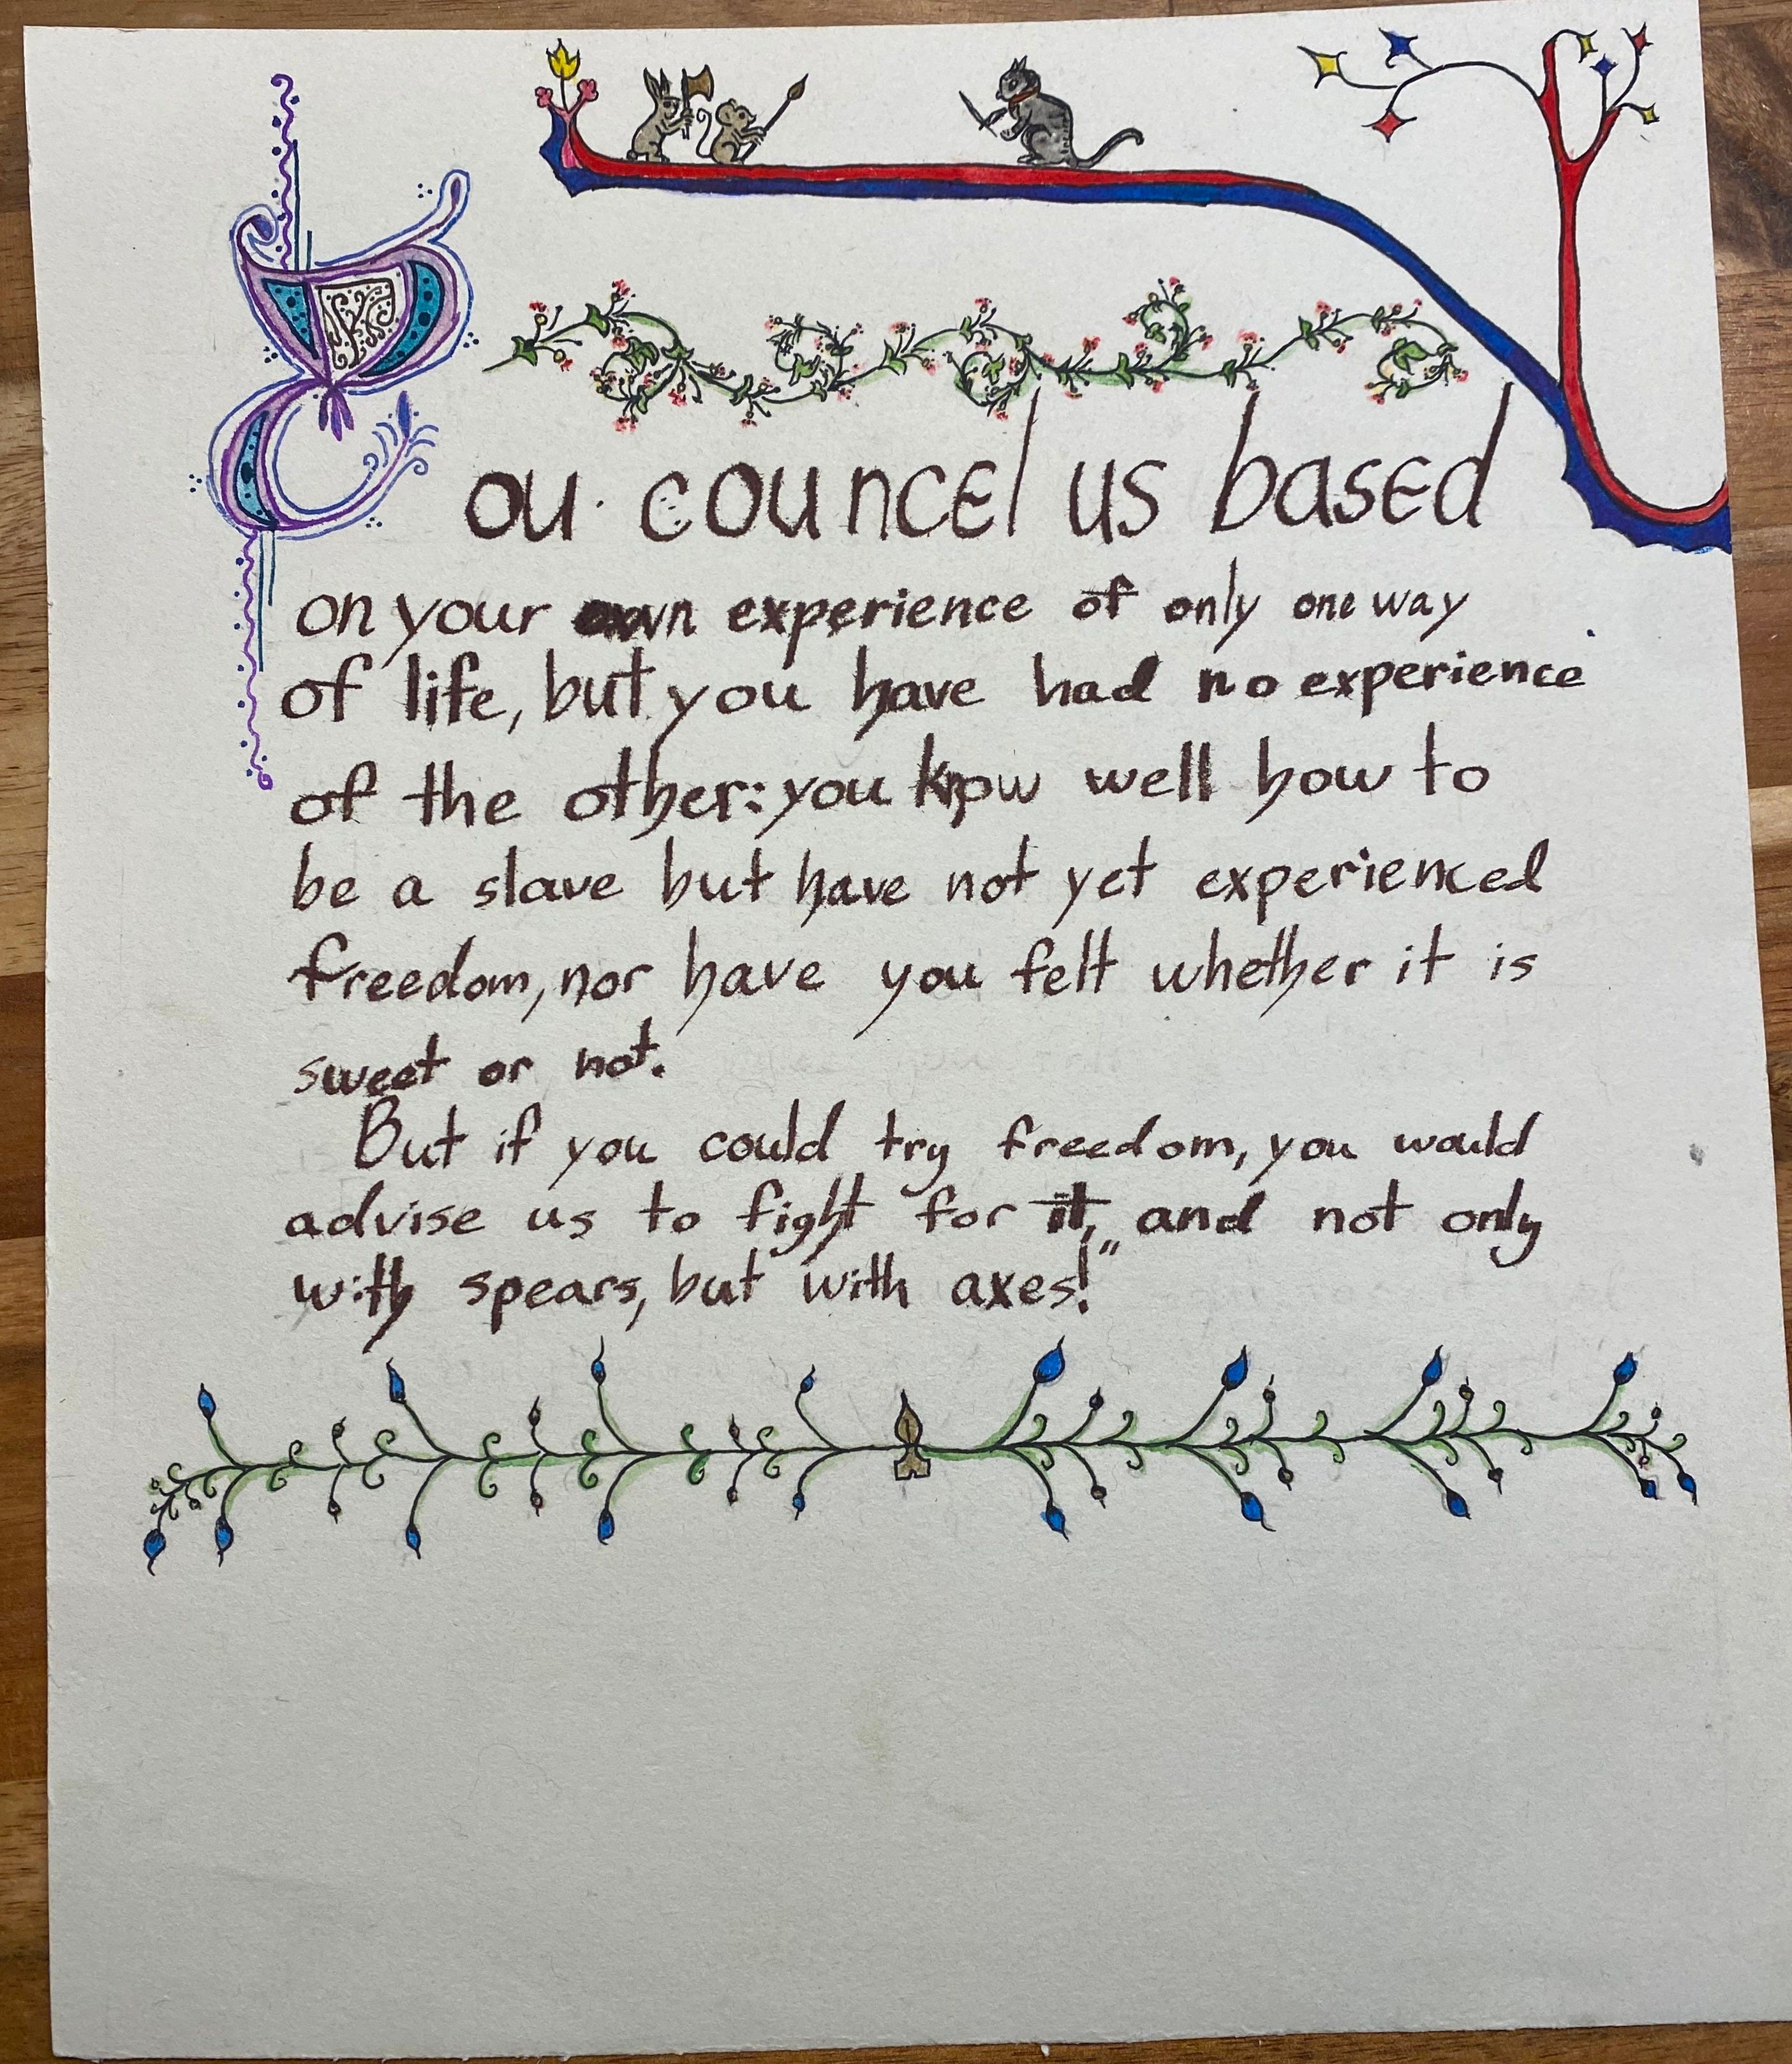 You councel us based
on your own experience of only one way
of life, but you have had no experience
of the other: you know well how to
be a slave but have not yet experienced
freedom, nor have you felt whether it is
sweet or not.
But if you could try freedom, you would
advise us to fight for it, and not only
with spears, but with axes!"